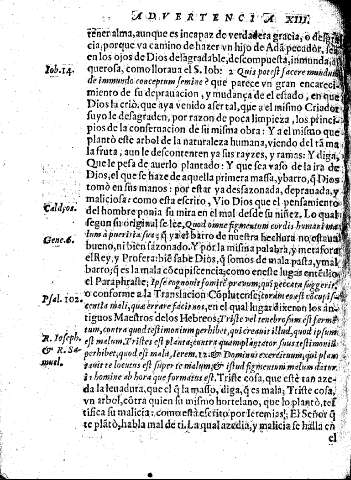 ADVERTENCIA XIII.
tener alma, aunque es incapaz de verdadera gracia, o desgra
cia, porque va camino de hazer vn hijo de Adã pecador, feo
en los ojos de Dios desagradable, descompuesta, inmunda, as
Iob. 14. querosa, como lloraua el S. Iob: 2 Quis potest facere mundum
de immundo conceptum semine? que parece vn gran encareci
miento de su deprauacion, y mudança de el estado, en que
Dios la criò, que aya venido a ser tal, que a el mismo Criador
suyo le desagraden, por razon de poca limpieza, los princi-
pios de la conseruacion de su misma obra: Y a el mismo que
plantò este arbol de la naturaleza humana, viendo del tã ma
la fruta, aun le descontenten ya sus rayzes, y ramas: Y diga,
Que le pesa de auerlo plantado: Y que sea vaso de la ira de
Dios, el que se haze de aquella primera massa, y barro, q̃ Dios
tomò en sus manos: por estar ya desazonada, deprauada, y
maliciosa: como esta escrito, Vio Dios que el pensamiento
Caldeos. del hombre ponia su mira en el mal desde su niñez. Lo qual
segun su original se lee, Quod omne figmentum cordis humani ma
Gene. 6. lum à pueritia sua: q̃ ya el barro de nuestra hechura no estaua
bueno, ni bien sazonado. Y por la misma palabra, y metafora
el Rey, y Profeta: biẽ sabe Dios, q̃ somos de mala pasta, y mal
barro; q̃ es la mala cõcupiscencia; como en este lugar entẽdio
el Paraphraste: Ipse cognouit fomitẽ prauum, qui peccare suggerit
Psal. 102. o conforme a la Translacion Cõplutense:
centia mali, quæ errare facit nos, en el qual lugar dixeron los an
tiguos Maestros de los Hebreos: Triste vel tenebrosum est fermẽ
tum, contra quod testimonium perhibet, qui creauit illud, quod ipsum
R. Ioseph. est malum. Tristes est planta; contra quam plantator suus testimoniũ
& R. Sa- perhibet, quod est mala, Ierem. 12. & Dominus exercituum, qui plan
muel. tauit te locutus est super te malum; & istud figmentum malum datur
homine ab hora que formatus est. Triste cosa, que estè tan aze-
da la leuadura, que el q̃ la massò, diga, q̃ es mala; Triste cosa,
vn arbol, cõtra quien su mismo hortelano, que lo plantò, tes
tifica su malicia: como està escrito por Ieremias: El Señor q̃
te plãtò, habla mal de ti. La qual azedia, y malicia se halla en
el